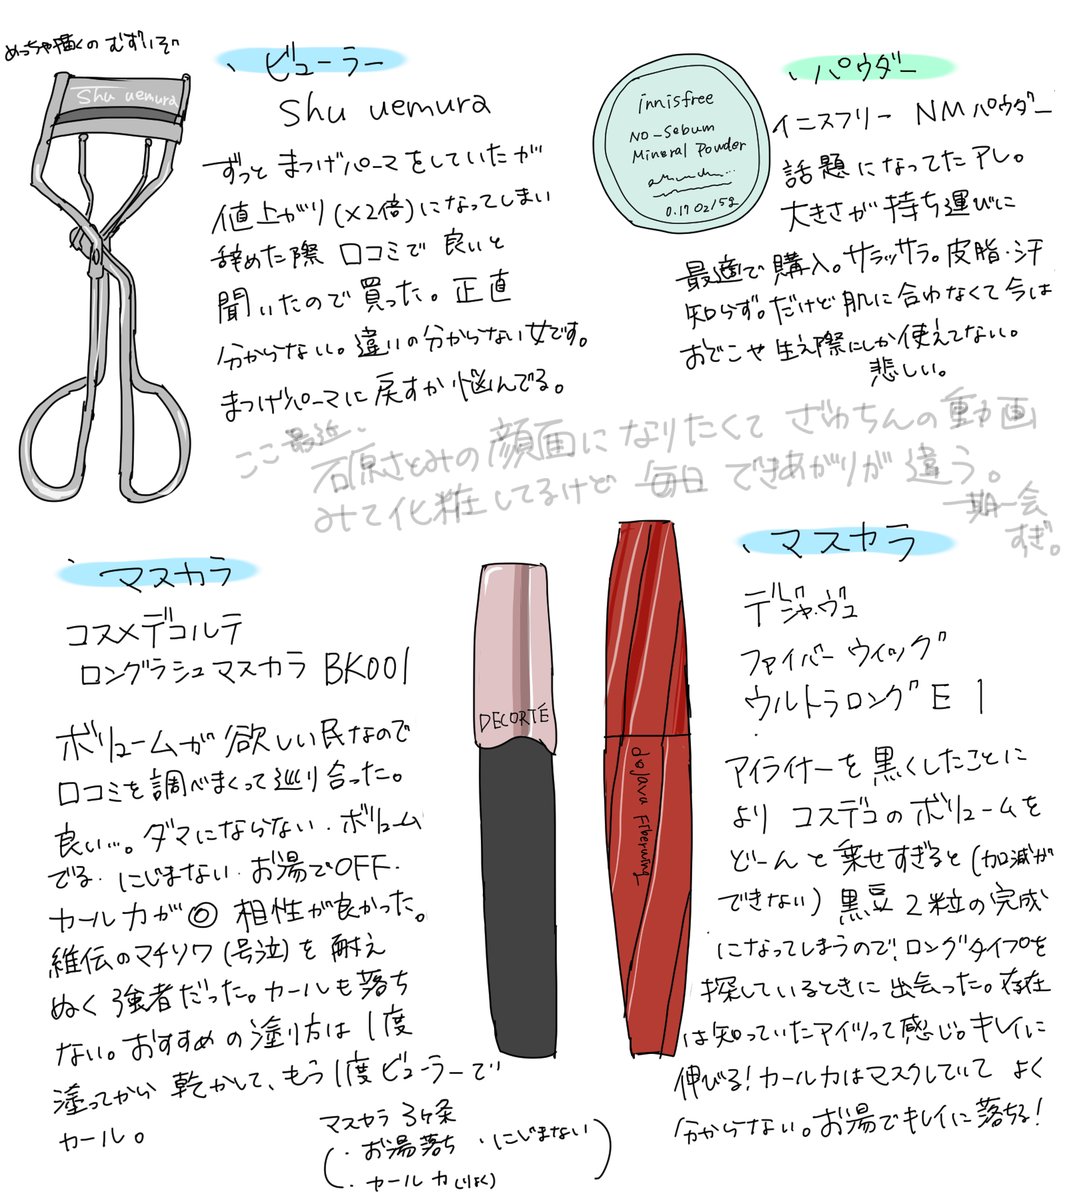 めっちゃ描くのむずいぞ
Shu uemura
、ビューラー
Shu uemura
ずっとまつげパーマをしていたが
値上がり(×2倍)になってしまい
辞めた際口コミで良いと
聞いたので買った。正直
分からない。違いの分からない女です。
まつげパーマに戻すか悩んでる。
innisfree
NO-Sebum
Mineral Powder
0.17 OZ/5g
、パウダー
イニスフリー NMパウダー
話題になってたアレ。
大きさが持ち運びに
最適で購入。サラッサラ。皮脂・汗
知らず。だけど肌に合わなくて今は
おでこや生え際にしか使えてない。
悲しい。
ここ最近、
石原さとみの顔面になりたくてざわちんの動画
みて化粧してるけど毎日できあがりが違う。
一期一会
すぎ。
、マスカラ
コスメデコルテ
ロングラシュマスカラ BK001
ボリュームが欲しい民なので
口コミを調べまくって巡り合った。
良い…。ダマにならない・ボリューム
でる・にじまない・お湯でOFF・
カール力が◎相性が良かった。
維伝のマチソワ(号泣)を耐え
ぬく強者だった。カールも落ち
ない。おすすめの塗り方は1度
塗ってから乾かして、もう1度ビューラーで
カール。
マスカラ3ケ条
(・お湯落ち・にじまない
・カール力(りょく))
DECORTÉ
dejavu Fiberwing
、マスカラ
デジャヴュ
ファイバーウィッグ
ウルトラロングE 1
アイライナーを黒くしたことに
よりコスデコのボリュームを
どーんと乗せすぎると(加減が
できない)黒豆2粒の完成
になってしまうので、ロングタイプを
探しているときに出会った。存在
は知っていたアイツって感じ。キレイに
伸びる!カール力はマスクしていてよく
分からない。お湯でキレイに落ちる!